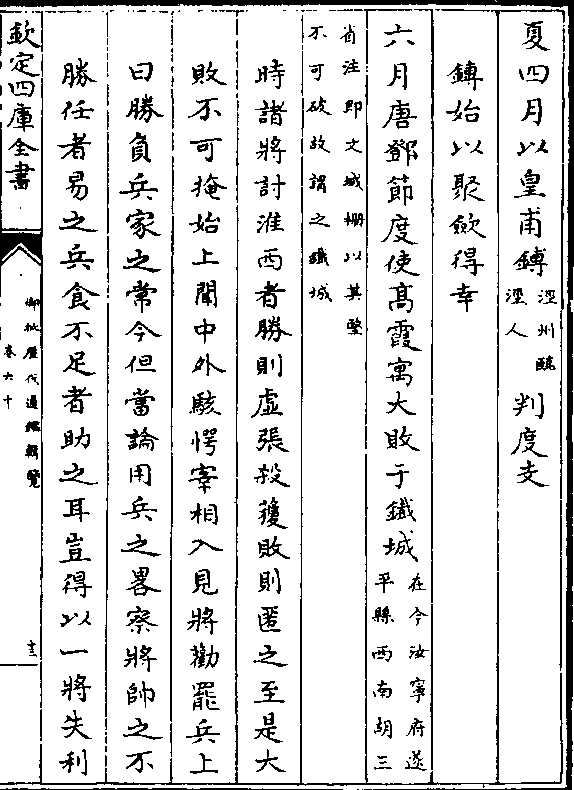 夏四月以皇甫鎛涇州臨涇人判度支
鎛始以聚斂得幸
六月唐鄧節度使髙霞寓大敗于鐵城在今汝寧府遂平縣西南胡三
省注即文城柵以其堅不可破故謂之鐵城
時諸將討淮西者勝則虛張殺獲敗則匿之至是大
敗不可掩始上聞中外駭愕宰相入見將勸罷兵上
曰勝負兵家之常今但當論用兵之畧察將帥之不
勝任者易之兵食不足者助之耳豈得以一將失利
欽定四庫全書
御批歷代通鑑輯覽
卷六十
十三